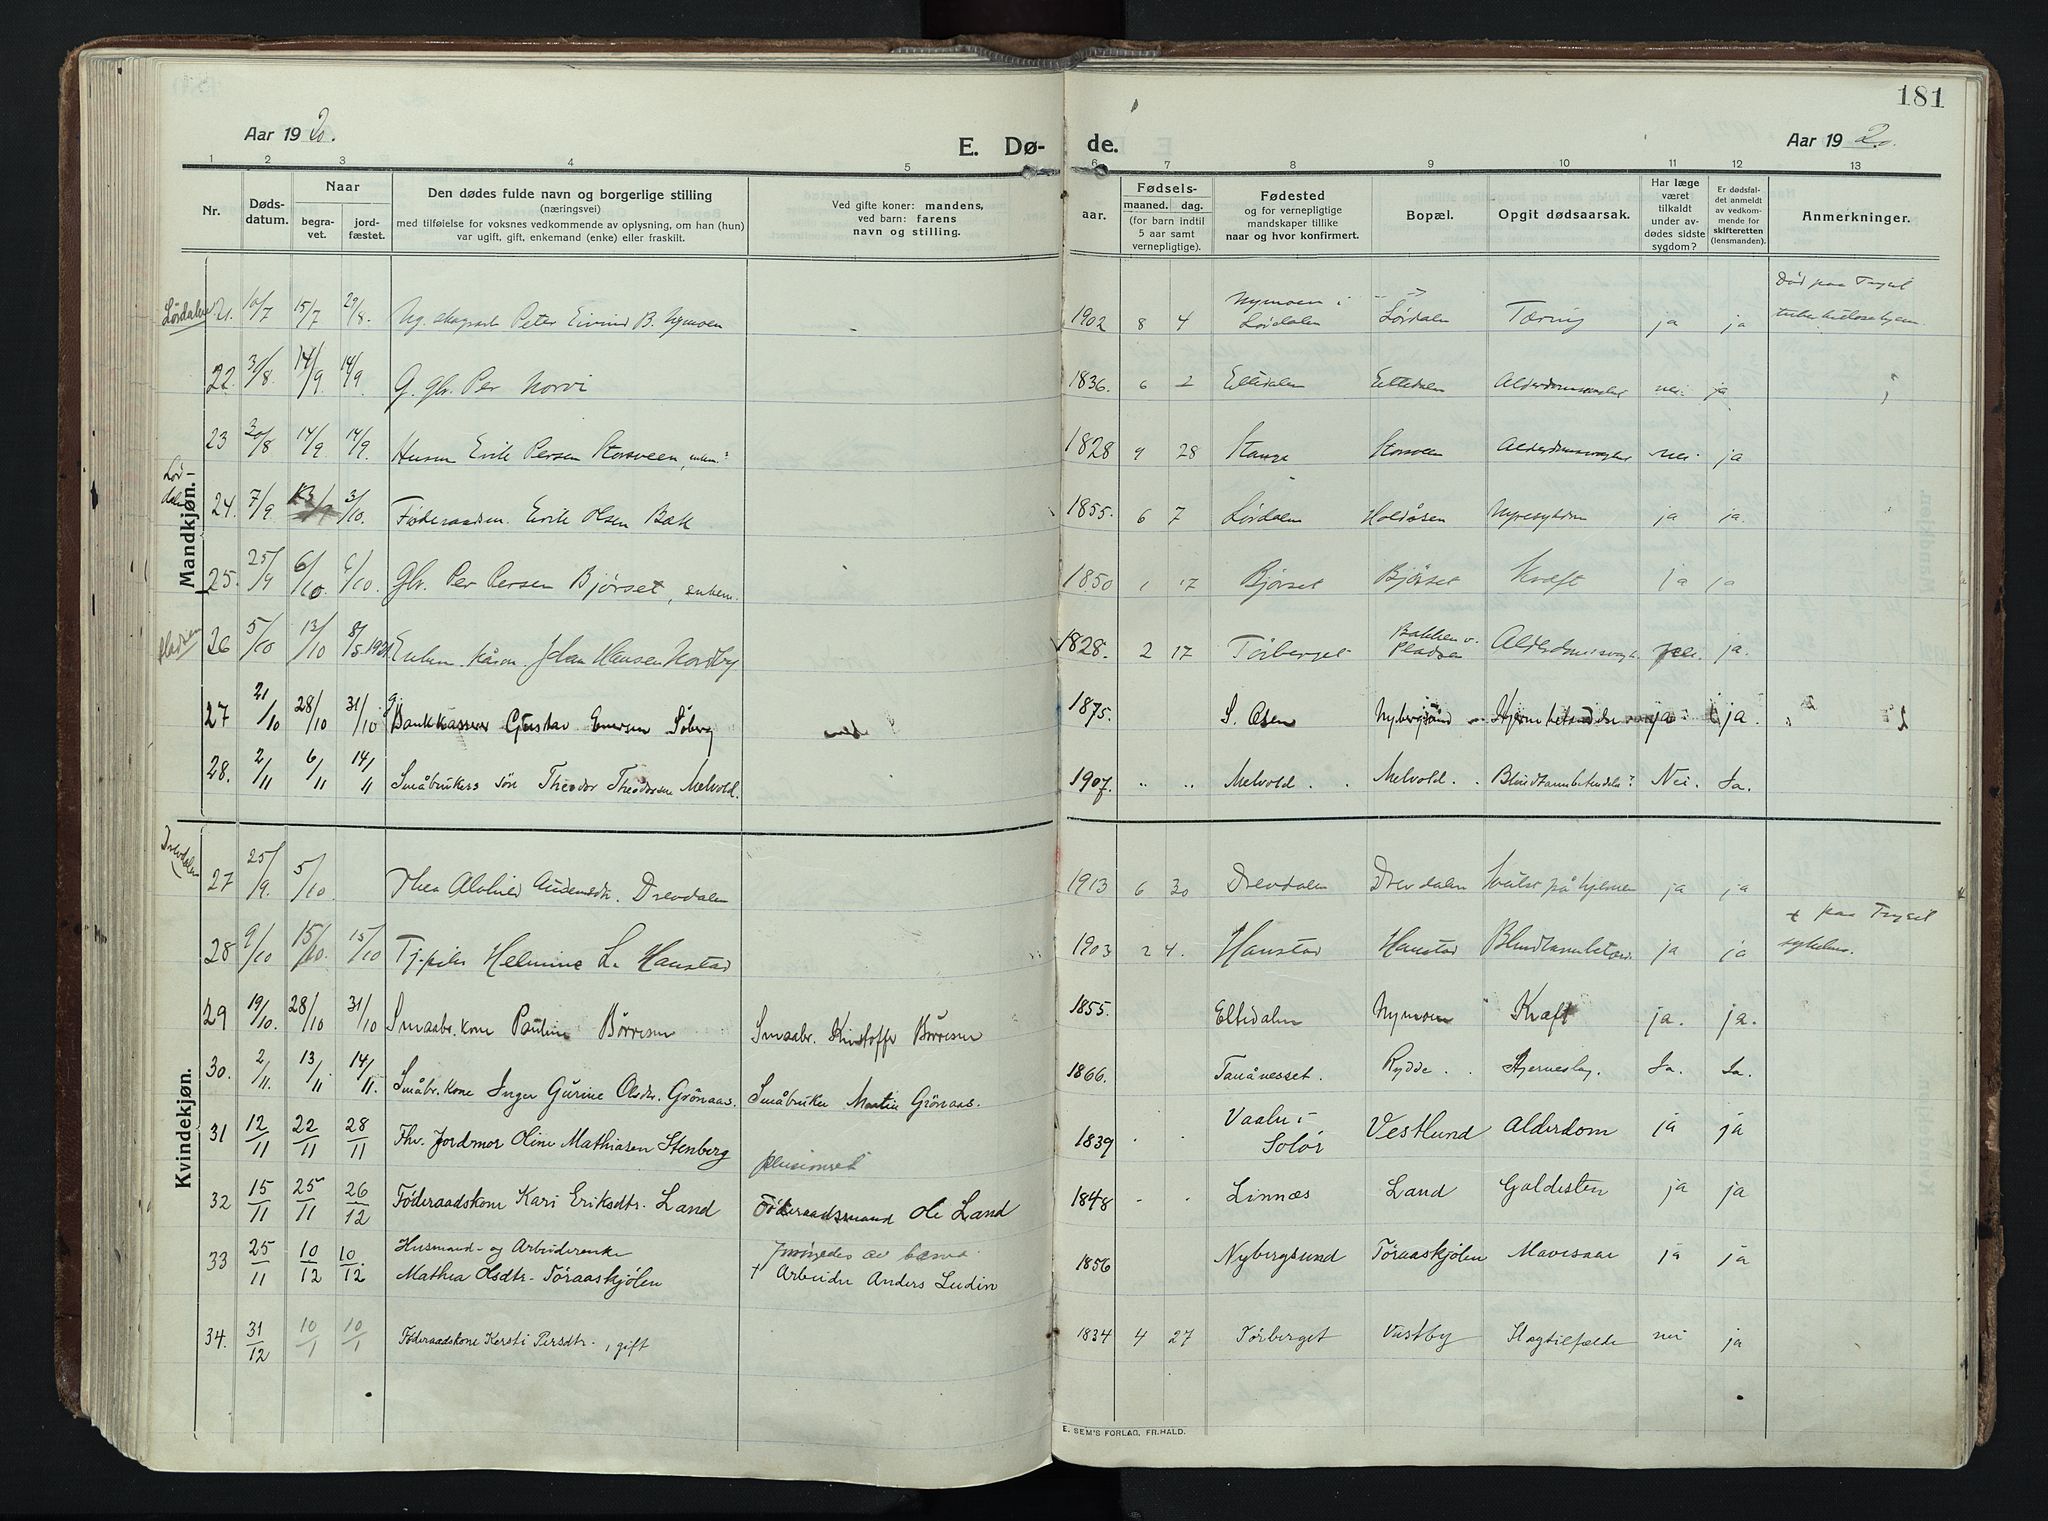 181
Aar 1920.
E. Dø-
de.
Aar 1920.
1 2 3 4 5 6 7 8 9 10 11 12 13
Nr.
Døds-
datum.
Naar
begra-
vet.
jord-
fæstet.
Den dødes fulde navn og borgerlige stilling
(næringsvei)
med tilføielse for voksnes vedkommende av oplysning, om han (hun)
var ugift, gift, enkemand (enke) eller fraskilt.
Ved gifte koner: mandens,
ved barn: farens
navn og stilling.
aar.
Fødsels-
maaned. dag.
(for barn indtil
5 aar samt
vernepligtige).
Fødested
og for vernepligtige
mandskaper tillike
naar og hvor konfirmert.
Bopæl.
Opgit dødsaarsak.
Har læge
været
tilkaldt
under av-
dødes sidste
sygdom?
Er dødsfal-
det anmeldt
av vedkom-
mende for
skifteretten
(lensmanden).
Anmerkninger.
Mandkjøn.
Lørdalen 21. 10/7 15/7 29/8. Peter Eivind B. Nymoen 1902 8 4 Nymoen i Lørdalen Lørdalen Tæring ja ja Død paa Trysil
22. 30/8. 14/9 14/9 G. gbr. Per Norvi 1836. 6 2 Eltdalen Eltdalen nei ja
23 30/8 14/9 14/9. Husm. Erik Persen Storsveen, enkem. 1828 9 28 Stange Storsveen nei ja
Lør-
dalen 24. 7/9. 3/10. Føderaadsm. Erik Olsen Bak 1855. 6 7 Lørdalen Holdåsen Nyresygdom ja ja.
25. 25/9 6/10 6/10. Gbr. Per Persen Bjørset, enkem. 1850 1 17 Bjørset Bjørset Kræft ja ja
Pladsen 26 5/10 13/10 8/5 1921 Enkem. Johan Hansen Nordby 1828. 2 17 Törberget Bakken v. Pladsen nei. ja.
27 21/10 28/10 31/10 g. Bankkasserer Gustav Enersen Söberg 1875. S. Osen Nybergsund Hjernebetændelse ja ja.
28. 2/11 6/11 14/11 Småbrukers sön Theodor Theodorsen Melvold. 1907. " " Melvold. Melvold. Blindtarmbetændelse? Nei. Ja.
Kvindekjøn.
Drevdalen 27 25/9. 5/10. Thea Alvhild Audensdtr. Drevdalen 1913 6 30 Drevdalen Drevdalen Svulst på hjernen ja ja
28 9/10 15/10. 15/10 Tj.pike Helmine L. Hanstad 1903 2 4. Hanstad Hanstad Blindtarmbetænd. ja ja + paa Trysil sykehus.
29 19/10. 28/10 31/10 Smaabr. kone Pauline Börresen Smaabr. Kristoffer Börresen 1855. Eltdalen Nymoen Kræft ja. ja.
30. 2/11. 13/11 14/11. Småbr. kone Inger Gurine Olsdtr. Grönaas. Småbruker Martin Grönaas. 1866. Tanåneset. Rydde. Hjerneslag. Ja. Ja.
31 12/11 22/11 28/11 Fhv. Jordmor Oline Mathiasen Stenberg pensionset 1839 . . Vaaler i Solör Vestlund Alderdom ja ja
32 15/11 25/11 26/12 Föderaadskone Kari Eriksdtr. Land Föderaadsmand Ole Land 1848 - . Linnæs Land Galdesten ja ja
33 25/11 10/12 10/12. Husmand- og Arbeiderenke
Mathea Olsdtr. Töraaskjölen forsörgedes av barna
+ Arbeider Anders Ludin 1856 Nybergsund Töraaskjölen Mavesaar ja ja
34. 31/12 10/1 10/1 Föderaadskone Kersti Persdtr., gift 1834 4 27 Törberget Vestby Slagtilfælde nei ja
E. SEM'S FORLAG, FR.HALD.